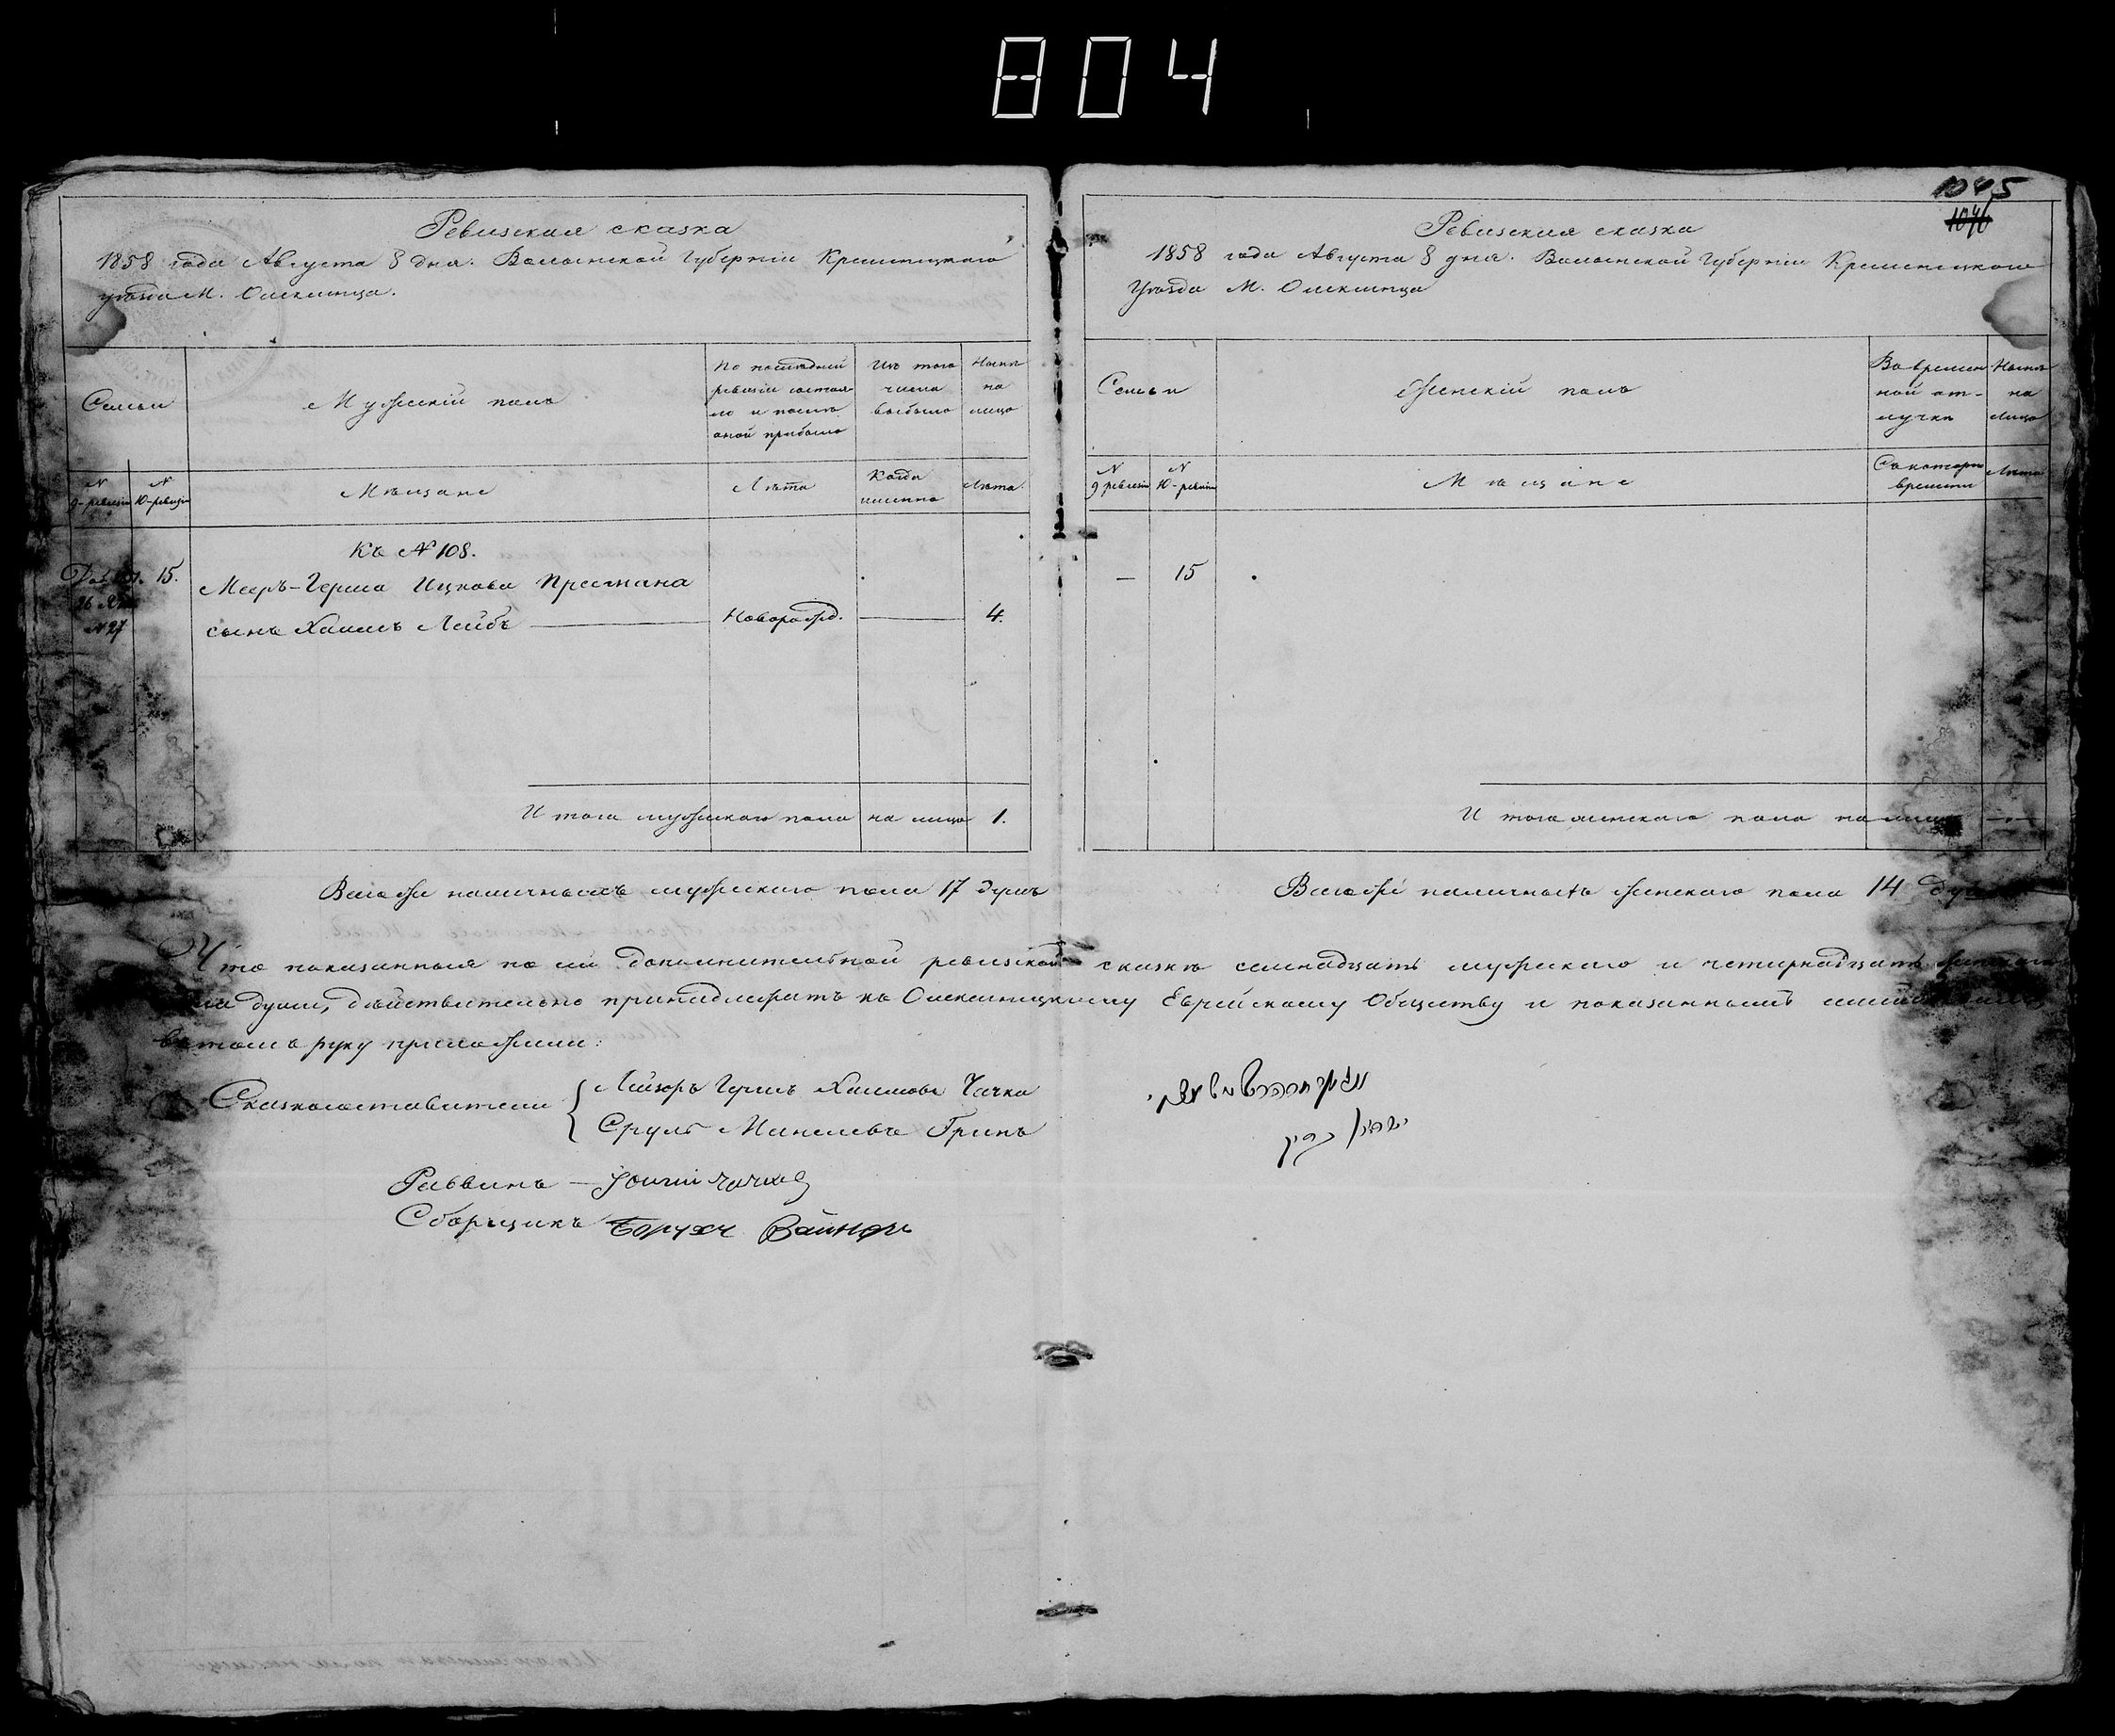 804
1045
1046
Ревизская сказка
1858 года Августа 8 дня. Волынской Губерніи Кременецкаго
уѣзда М. Олексинца.
Семьи
Мужескій полъ
По последней ревизіи состояло и после оной прибыло
Изъ того числа выбыло
Нынѣ на лицо
N 9-ревизіи
N 10-ревизіи
Мѣщане
Лѣта
Когда именно
Лѣта.
Къ № 108.
15.
Мееръ-Герша Ицкова
26
№ 27
сынъ Хаимъ Лейбъ
Новорожд.
4.
Итого мужескаго пола на лицо 1.
Всего же наличныхъ мужескаго пола 17 душъ
Ревизская сказка
1858 года Августа 8 дня. Волынской Губерніи Кременецкого
Уѣзда М. Олексинца
Семьи
Женскій полъ
Во временной отлучки
Нынѣ на лицо
N 9 ревизіи
N 10-ревизіи
Мѣщане
Съ котораго времени
Лѣта
— 15
Итого женскаго пола на лицо —
Всего же наличныхъ женскаго пола 14
Что показанныя по сей дополнительной ревизской сказкѣ семнадцать мужескаго и четырнадцать женскаго
души, дѣйствительно принадлежатъ къ Олексинецкому Еврейскому Обществу и показаннымъ
въ томъ руку приложили:
Сказкосоставители
Лейзоръ Гершъ Хаимовъ Чачка
Сруль Гринъ
ישראל גרין
Раввинъ —
Сборщикъ Борухъ